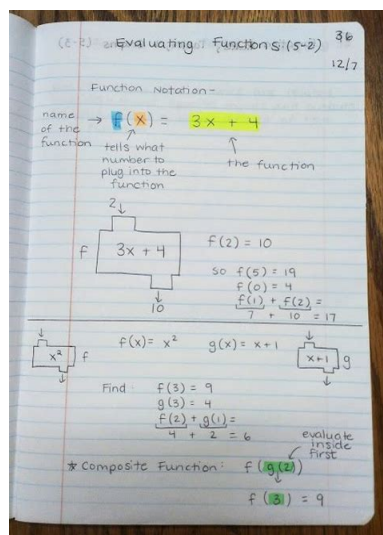 Evaluating Functions (5-2)
36
12/7
Function Notation-
name of the function → f(x) = 3x + 4
tells what number to plug into the function
the function
2↓
f
3x + 4
↓
10
f(2) = 10
so f(5) = 19
f(0) = 4
f(1) + f(2) =
7 + 10 = 17
x² f
f(x) = x²
g(x) = x+1
x+1 g
Find f(3) = 9
g(3) = 4
f(2) + g(1) =
4 + 2 = 6
evaluate
inside
first
* Composite Function: f(g(2))
f(3) = 9